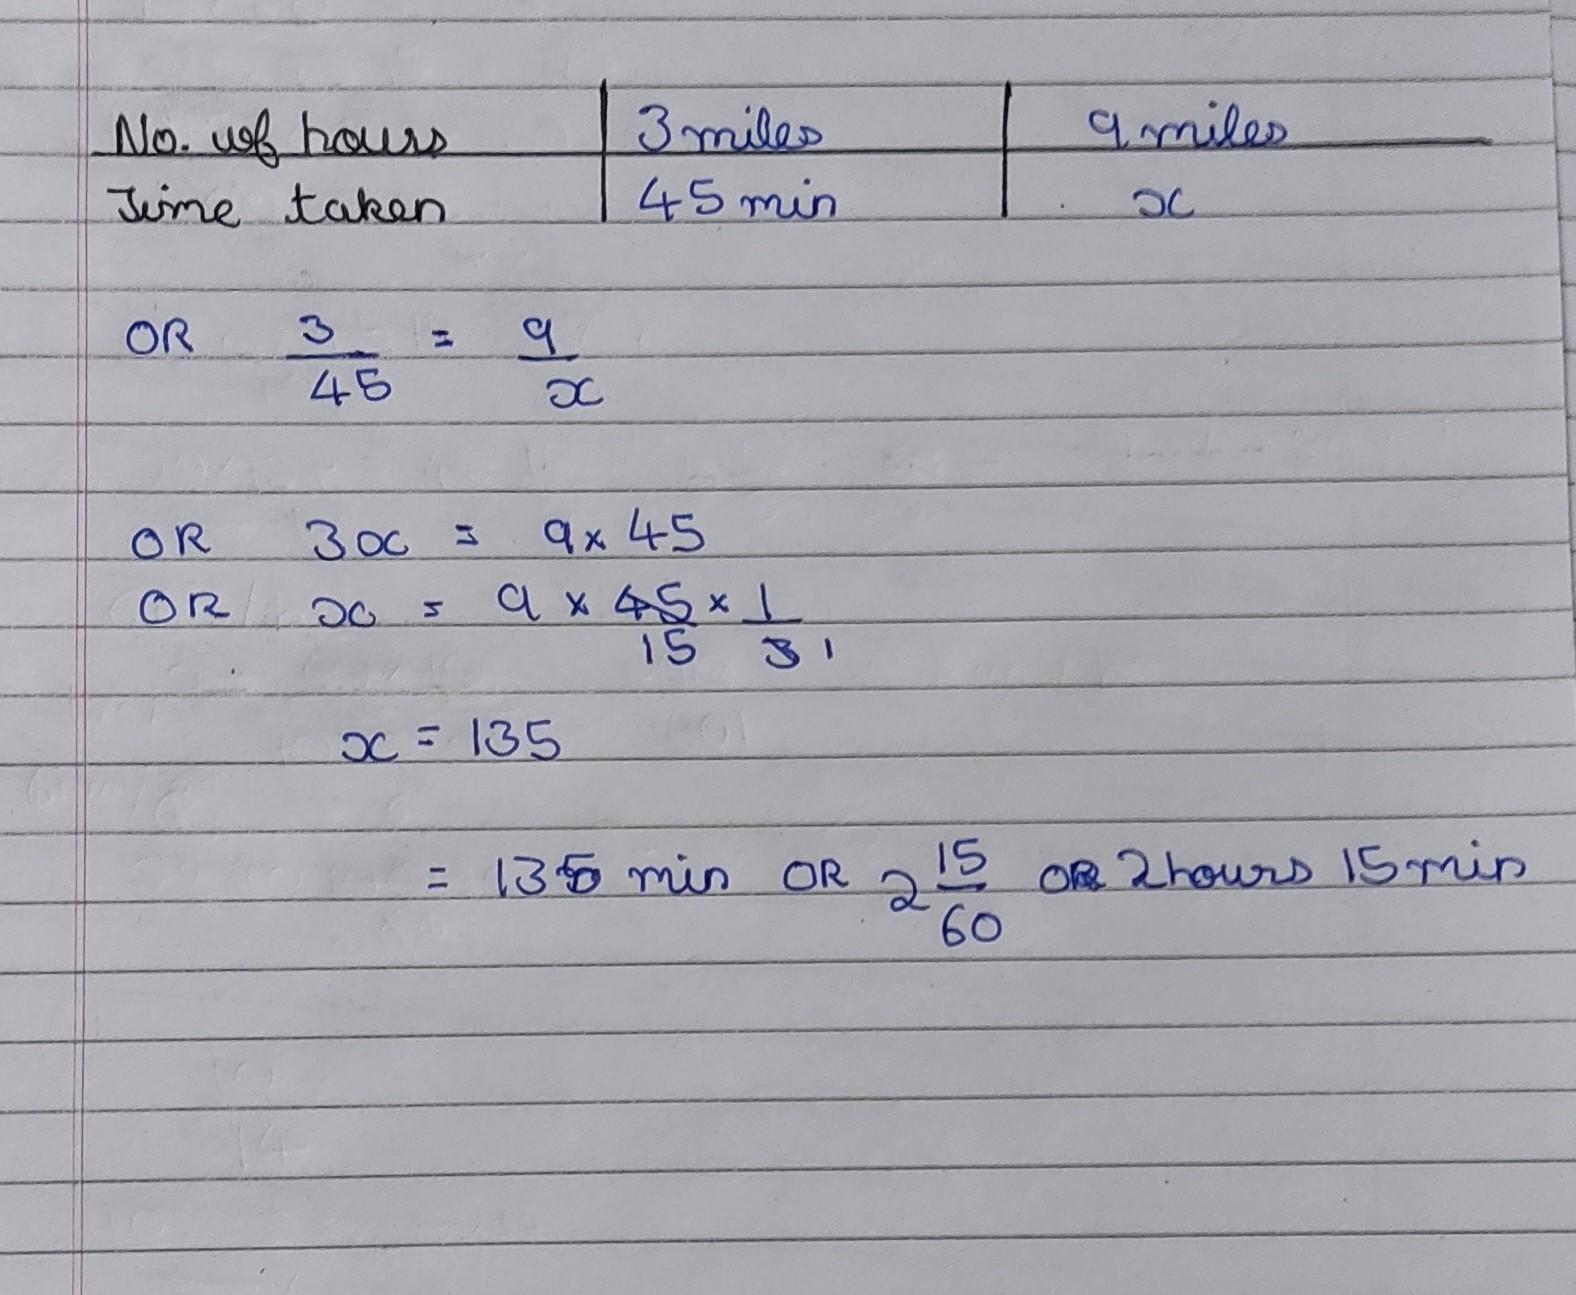 No. of hours | 3 miles | 9 miles
Time taken | 45 min | x
OR 3/45 = 9/x
OR 3x = 9 x 45
OR x = 9 x 45/15 x 1/3 1
x = 135
= 135 min OR 2 15/60 OR 2 hours 15 min